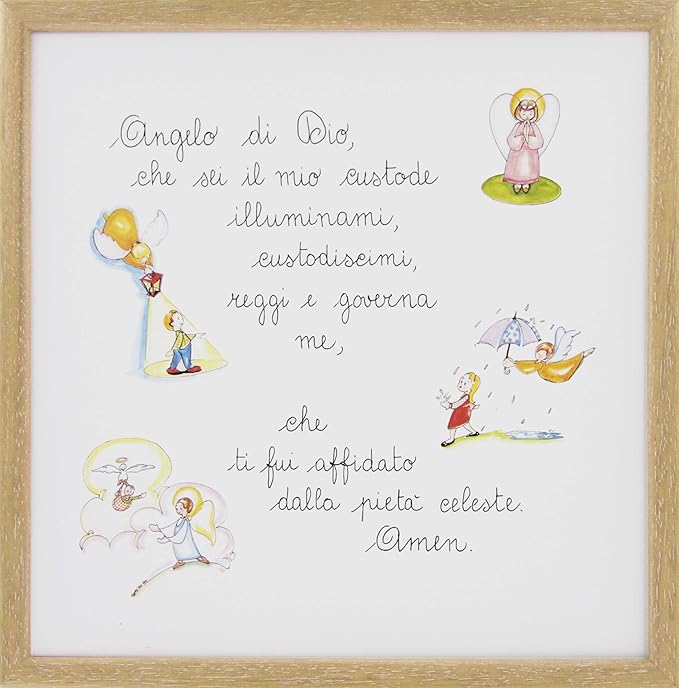 Angelo di Dio,
che sei il mio custode
illuminami,
custodiscimi,
reggi e governa
me,
che
ti fui affidato
dalla pietà celeste.
Amen.